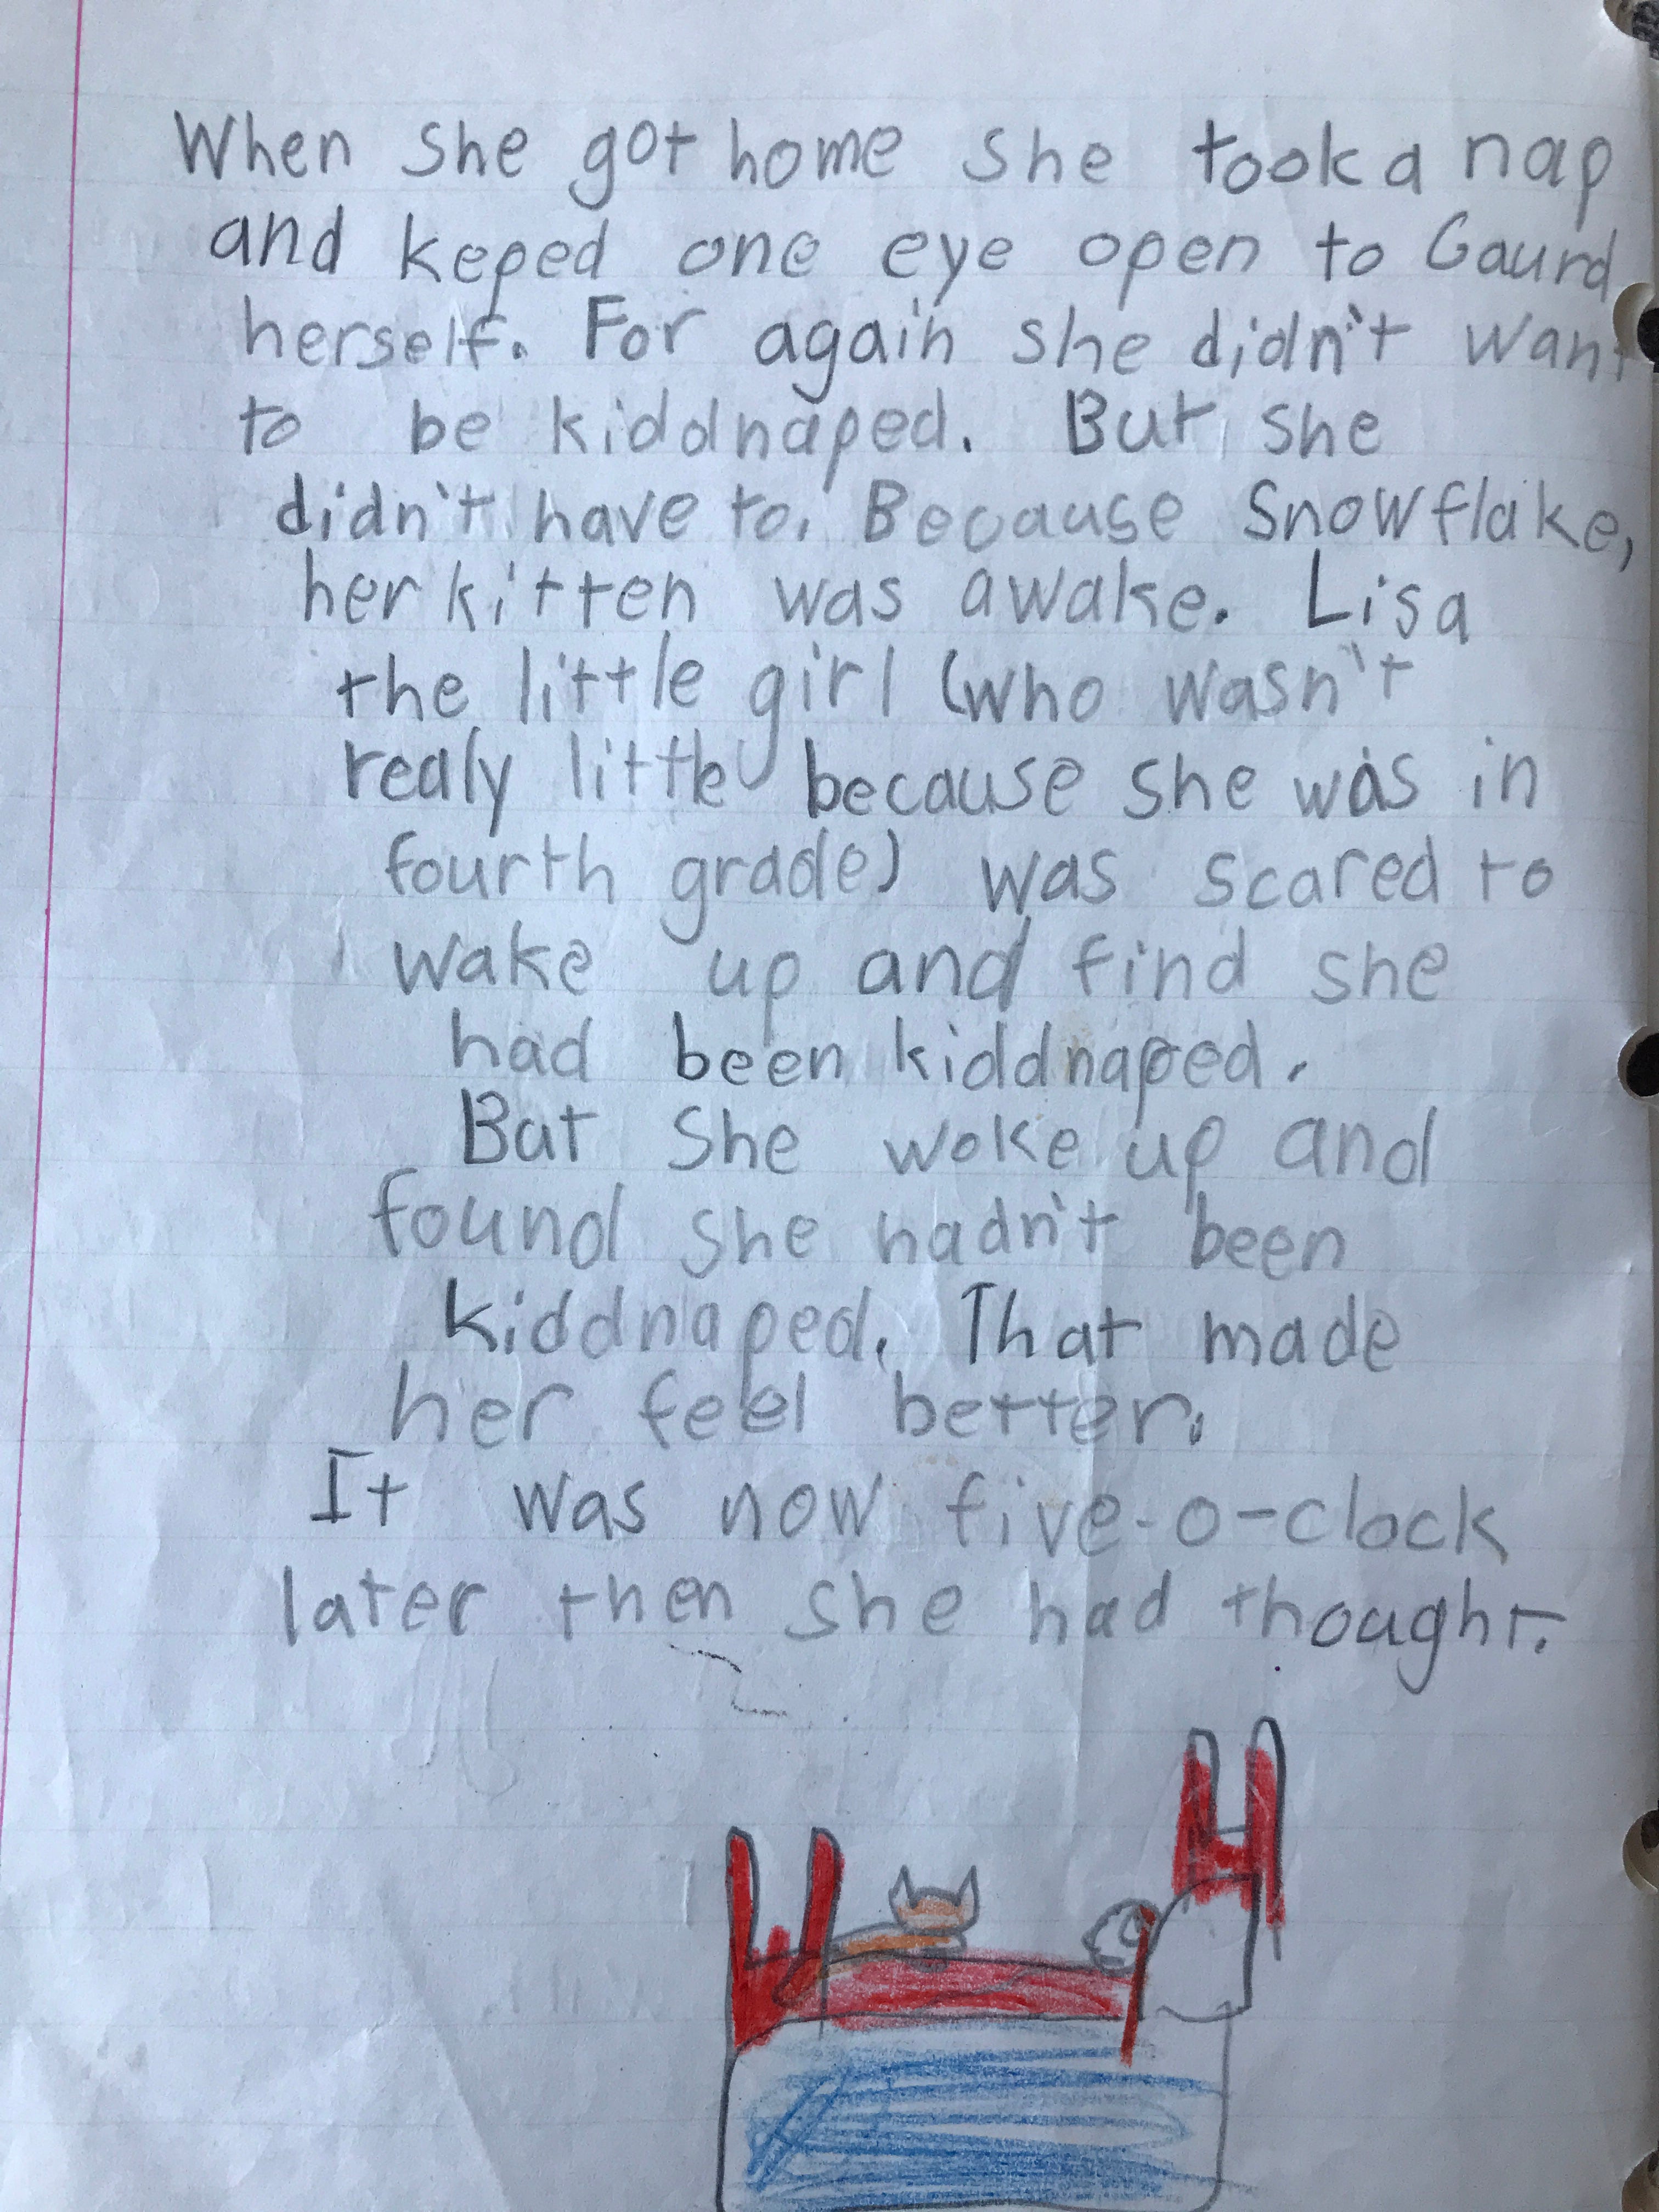 When she got home she took a nap
and keped one eye open to Gaurd
herself. For again she didn't want
to be kiddnaped. But she
didn't have to. Because Snowflake,
her kitten was awake. Lisa
the little girl (who wasn't
realy little because she was in
fourth grade) was scared to
wake up and find she
had been kiddnaped.
But she woke up and
found she hadn't been
kiddnaped. That made
her feel better.
It was now five-o-clock
later then she had thought.